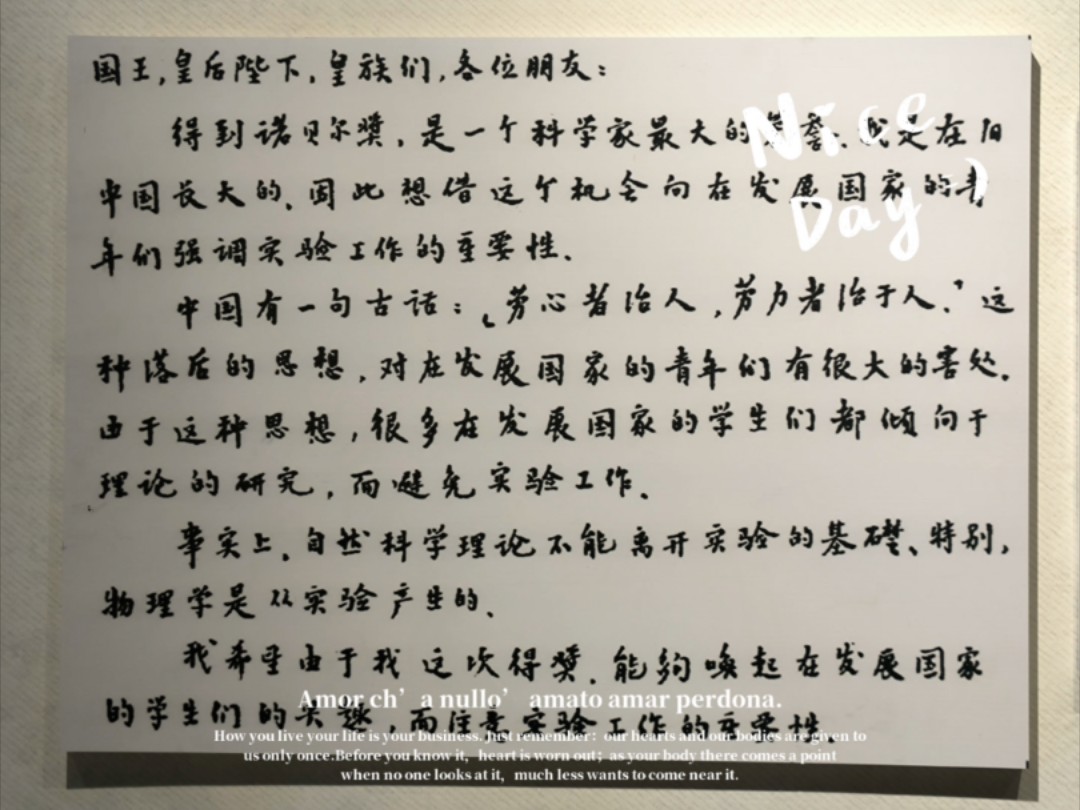 国王,皇后陛下,皇族们,各位朋友:
得到诺贝尔奖,是一个科学家最大的荣誉、我是在旧
中国长大的、因此想借这个机会向在发展国家的青
年们强调实验工作的重要性、
中国有一句古话:“劳心者治人,劳力者治于人.”这
种落后的思想,对在发展国家的青年们有很大的害处.
由于这种思想,很多在发展国家的学生们都倾向于
理论的研究,而避免实验工作、
事实上,自然科学理论不能离开实验的基礎、特别,
物理学是从实验产生的、
我希望由于我这次得奖,能够唤起在发展国家
的学生们的兴趣,而注意实验工作的重要性、
Nice
Day
Amor ch’a nullo’ amato amar perdona.
How you live your life is your business. Just remember: our hearts and our bodies are given to
us only once.Before you know it, heart is worn out; as your body there comes a point
when no one looks at it, much less wants to come near it.